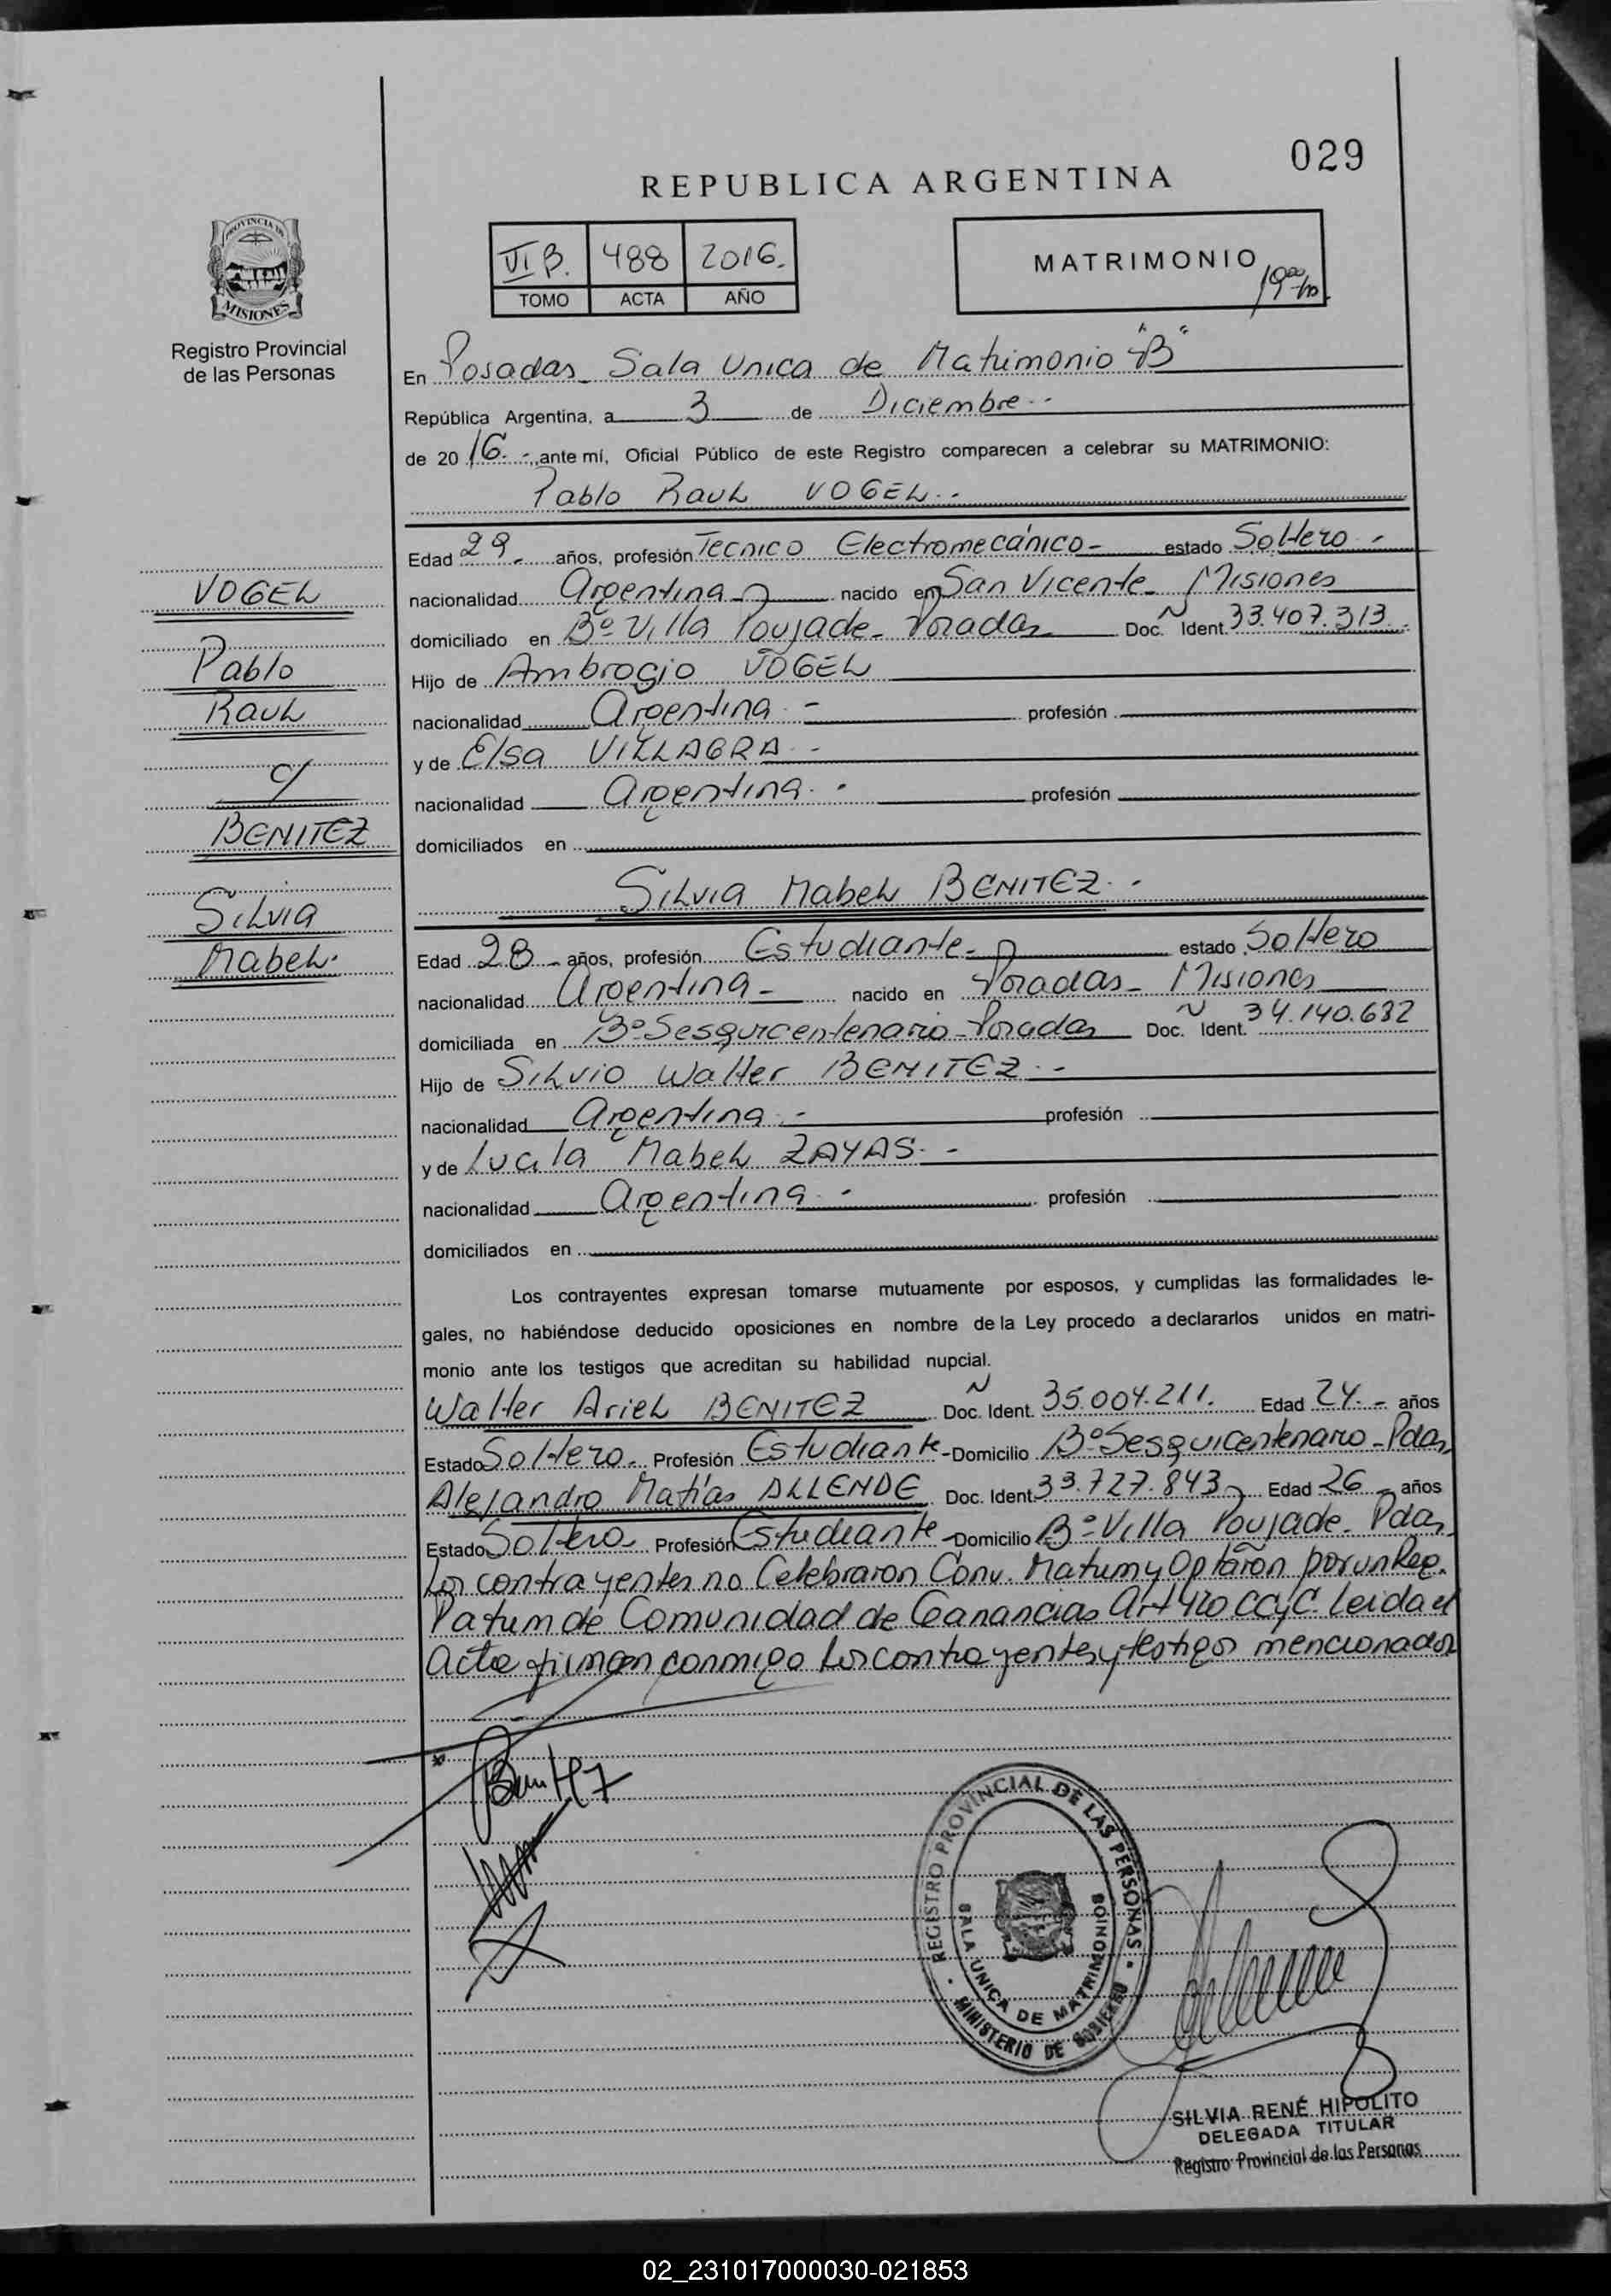 029
REPUBLICA ARGENTINA
PROVINCIA DE
MISIONES
Registro Provincial
de las Personas
VI B. 488 2016.
TOMO ACTA AÑO
MATRIMONIO
En Posadas Sala Unica de Matrimonio "B"
República Argentina, a 3 de Diciembre
de 2016.-, ante mí, Oficial Público de este Registro comparecen a celebrar su MATRIMONIO:
Pablo Raul VOGEL.-
Edad 29 años, profesión Tecnico Electromecánico- estado Soltero-
nacionalidad Argentina- nacido en San Vicente- Misiones
domiciliado en Bº Villa Poujade- Posadas Doc. N Ident. 33.407.313
Hijo de Ambrocio VOGEL
nacionalidad Argentina- profesión
y de Elsa VILLAGRA.-
nacionalidad Argentina.- profesión
domiciliados en
VOGEL
Pablo
Raul
c/
BENITEZ
Silvia
Mabel.
Silvia Mabel BENITEZ.-
Edad 28- años, profesión Estudiante- estado Soltero
nacionalidad Argentina- nacido en Posadas- Misiones
domiciliada en Bº Sesquicentenario-Posadas Doc. N Ident. 34.140.632
Hijo de Silvio Walter BENITEZ.-
nacionalidad Argentina.- profesión
y de Lucila Mabel ZAYAS.-
nacionalidad Argentina.- profesión
domiciliados en
Los contrayentes expresan tomarse mutuamente por esposos, y cumplidas las formalidades le-
gales, no habiéndose deducido oposiciones en nombre de la Ley procedo a declararlos unidos en matri-
monio ante los testigos que acreditan su habilidad nupcial.
Walter Ariel BENITEZ Doc. N Ident. 35.004.211. Edad 24.- años
Estado Soltero. Profesión Estudiante-Domicilio Bº Sesquicentenario-Pdas
Alejandro Matías ALLENDE Doc. Ident. 33.727.843 Edad 26- años
Estado Soltero Profesión Estudiante-Domicilio Bº Villa Poujade. Pdas.
Los contrayentes no Celebraron Conv. Matrim y Optaron por un Reg.
Patrim de Comunidad de Ganancias Art 420 CCyC. Leida el
Acta firman conmigo Los contrayentes y testigos mencionados
Benitez
REGISTRO PROVINCIAL DE LAS PERSONAS
SALA UNICA DE MATRIMONIOS
MINISTERIO DE GOBIERNO
SILVIA RENÉ HIPOLITO
DELEGADA TITULAR
Registro Provincial de las Personas
02_231017000030-021853